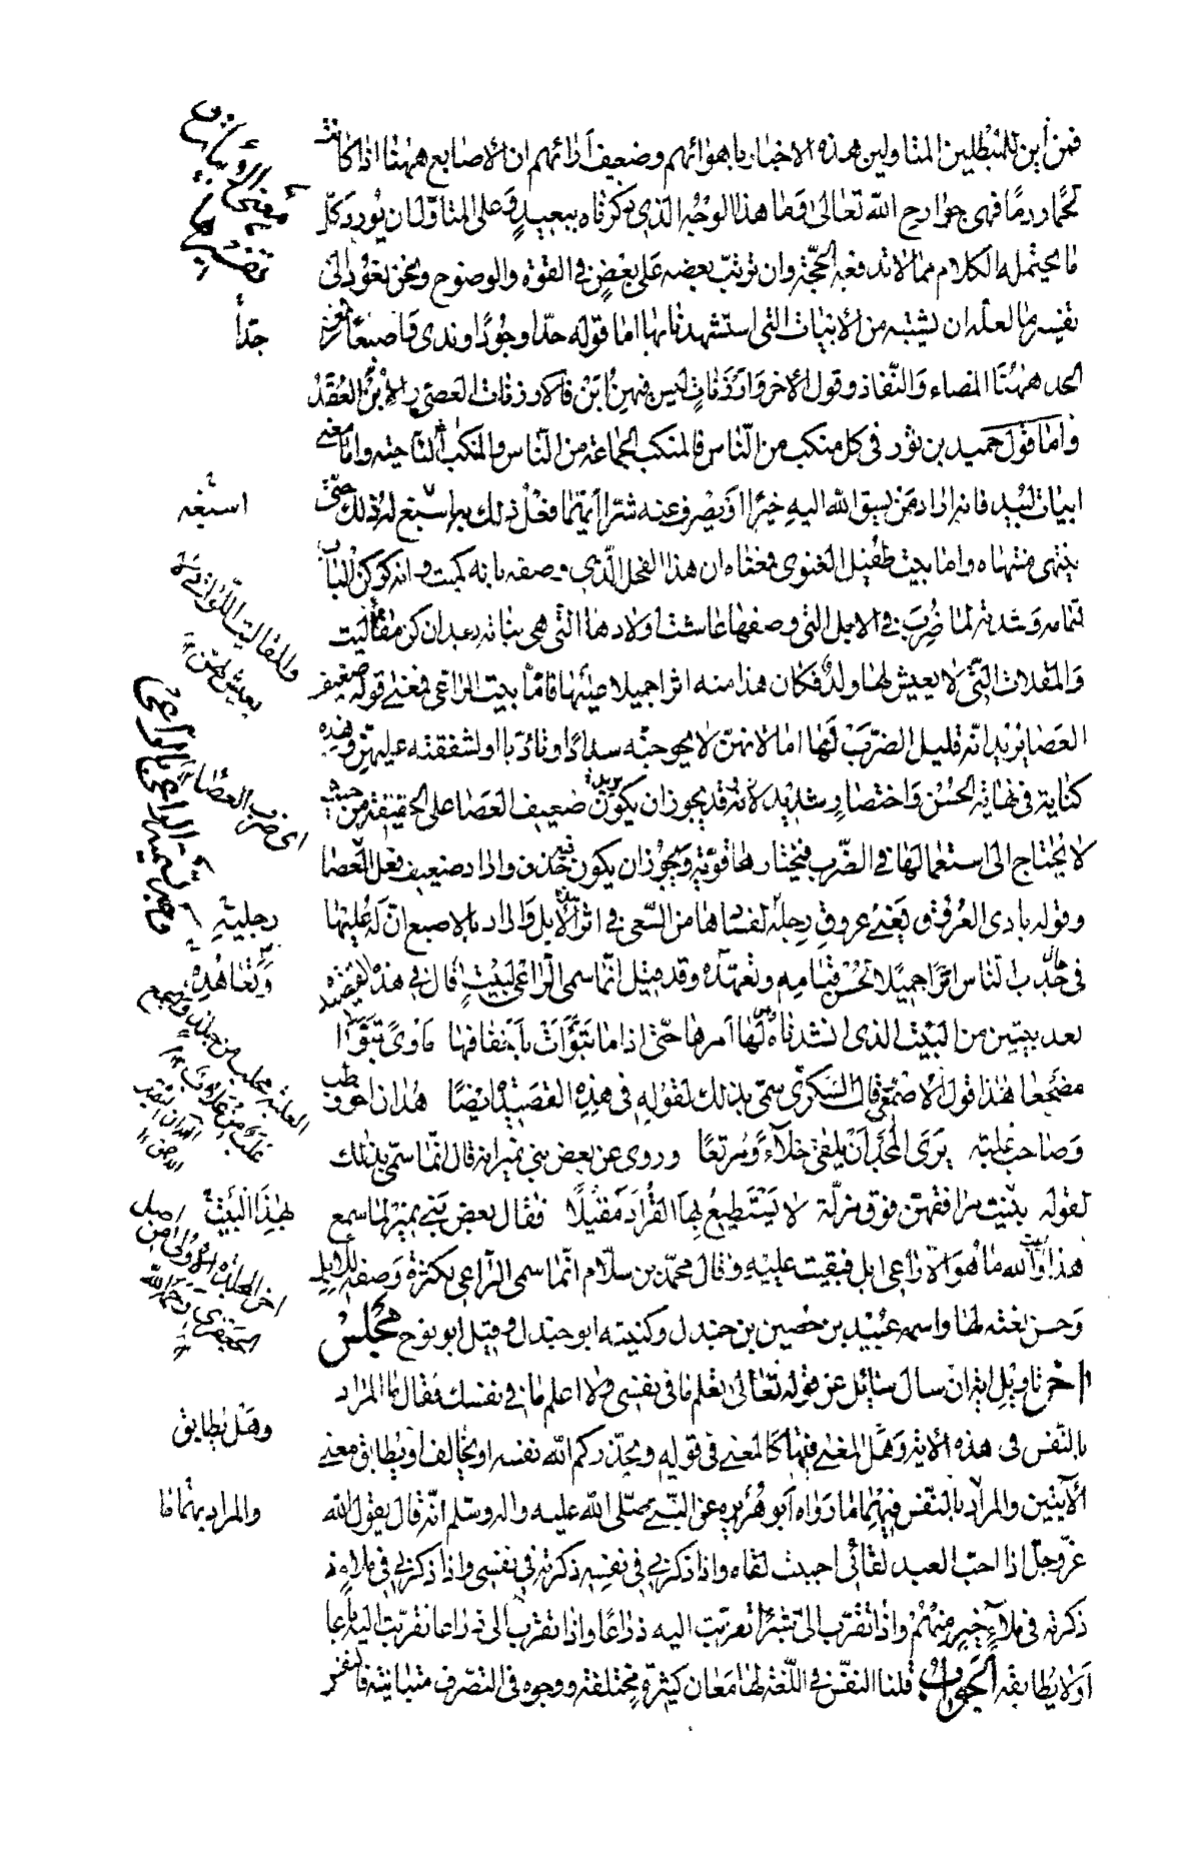 فمن أين للمبطلين المتاولين هذه الاخبار باهوائهم وضعيف آرائهم ان الاصابع ههنا اذا كانت
لحما ودما فهى جوارح الله تعالى وما هذا الوجه الذى ذكرناه ببعيد وعلى المتاول ان يورد كل
ما يحتمله الكلام مما لا تدفعه الحجة وان ترتب بعضه على بعض فى القوة والوضوح ونحن نعود الى
تفسير ما لعله ان يشتبه من الابيات التى استشهدنا بها اما قوله حدا وجودا وندى واصبعا فمعنى
الحد ههنا المضاء والنفاذ وقول الاخر وارزنات ليس فيهن ابن فالارزنات العصى والابن العقد
واما قول حميد بن ثور فى كل منكب من الناس فالمنكب الجماعة من الناس والمنكب الناحية واما معنى
ابيات لبيد فانه اراد من يسق الله اليه خيرا او يصرف عنه شرا ايتما فعل ذلك به اسبغ له ذلك حتى
ينتهى منتهاه واما بيت طفيل الغنوى فمعناه ان هذا الفحل الذى وصفه بانه كميت وانه كركن الباب
لتمامه وشدته لما ضرب فى الابل التى وصفها عاشت اولادها التى هى بناته بعد ان كن مقاليت
والمقلات التى لا يعيش لها ولد فكان هذا منه اثرا جميلا عليها فاما بيت الراعى فمعنى قوله ضعيف
العصا يريد انه قليل الضرب لها اما لانهن لا يحوجنه سدادا وتأدبا او لشفقته عليهن وهذه
كناية فى نهاية الحسن واختصار شديد لانه قد يجوز ان يكون يريد ضعيف العصا على الحقيقة من حيث
لا يحتاج الى استعمالها فى الضرب فيختارها قوية ويجوز ان يكون فيه حذف واراد ضعيف فعل العصا
وقوله بادى العروق يعنى عروق رجله لفسادها من السعى فى اثر الابل واراد بالاصبع ان له عليها
فى جدب الناس اثرا جميلا لحسن قيامه وتعهده وقد قيل انما سمى الراعى لبيت قال فى هذه القصيدة
بعد بيتين من البيت الذى انشدناه لها امرها حتى اذا ما تبوأت باخفافها مأوى تبوأ
مضجعا هذا قول الاصمعى قال السكرى سمى بذلك لقوله فى هذه القصيدة ايضا هدان اخو وطب
وصاحب علبة يرى المجد ان يلقى خلاء ومرتعا وروى عن بعض بنى نمير انه قال انما سمى بذلك
لقوله بنيت مرافقهن فوق مزلة لا يستطيع بها القراد مقيلا فقال بعض بنى نمير لما سمع
هذا البيت والله ما هو الا راعى ابل فبقيت عليه وقال محمد بن سلام انما سمى الراعى لكثرة وصفه للابل
وحسن نعته لها واسمه عبيد بن حصين بن جندل وكنيته ابو جندل وقيل ابو نوح مجلس
اخر تاويل اية ان سال سائل عن قوله تعالى تعلم ما فى نفسى ولا اعلم ما فى نفسك فقال ما المراد
بالنفس فى هذه الاية وهل المعنى فيها كالمعنى فى قوله ويحذركم الله نفسه او يخالف او يطابق معنى
الآيتين والمراد بالنفس فيهما ما رواه ابو هريرة عن النبى صلى الله عليه واله وسلم انه قال يقول الله
عز وجل اذا احب العبد لقائى احببت لقاه واذا ذكرنى فى نفسه ذكرته فى نفسى واذا ذكرنى فى ملاء
ذكرته فى ملاء خير منهم واذا تقرب الى شبرا تقربت اليه ذراعا واذا تقرب الى ذراعا تقربت اليه باعا
او لا يطابقه الجواب قلنا النفس فى اللغة لها معان كثيرة مختلفة ووجوه فى التصرف متباينة فالنفس
معنى الابيات
تفسير
جدا
اسبغه
والمقاليت اللواتى لا
يعيش لهن
اى ضرب العصا
وجه تسمية الراعى بالراعى
رجليه
وتعاهده
العلبة محلب من جلد والجمع
علب وعلاب
لهذا البيت
وهل يطابق
والمراد بهما ما